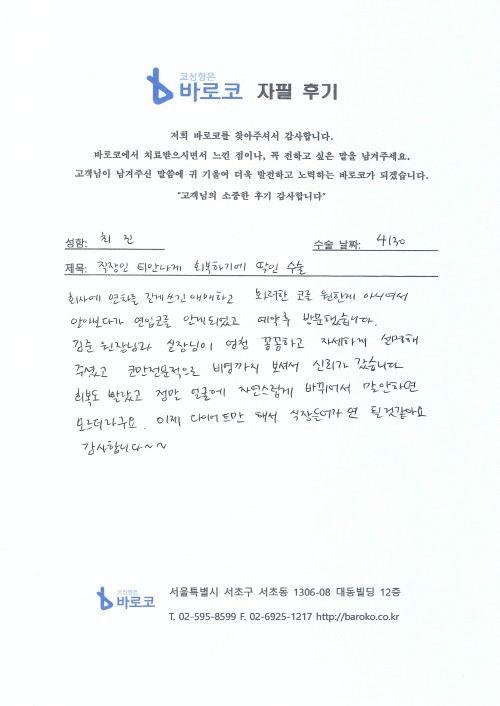 코성형은
바로코 자필 후기
저희 바로코를 찾아주셔서 감사합니다.
바로코에서 치료받으시면서 느낀 점이나, 꼭 전하고 싶은 말을 남겨주세요.
고객님이 남겨주신 말씀에 귀 기울여 더욱 발전하고 노력하는 바로코가 되겠습니다.
"고객님의 소중한 후기 감사합니다"
성함: 최 진 수술 날짜: 4/30
제목: 직장인 티안나게 회복하기에 딱인 수술
회사에 연차를 길게쓰긴 애매하고 화려한 코를 원한게 아니여서
알아보다가 연입코를 알게되었고 예약후 방문했습니다.
김준 원장님과 실장님이 엄청 꼼꼼하고 자세하게 설명해
주셨고 코만전문적으로 비염까지 보셔서 신뢰가 갔습니다
회복도 빨랐고 정말 얼굴에 자연스럽게 바뀌어서 말안하면
모르더라구요. 이제 다이어트만 해서 식장들어가면 될것같아요
감사합니다~~
코성형은
바로코
서울특별시 서초구 서초동 1306-08 대동빌딩 12층
T. 02-595-8599 F. 02-6925-1217 http://baroko.co.kr